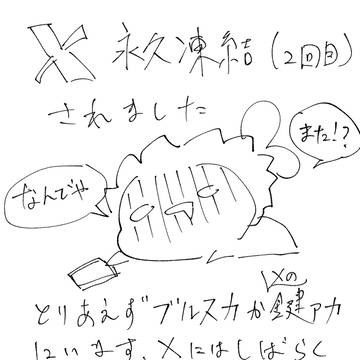 X 永久凍結(2回目)
されました
また!?
なんでや
Xの
とりあえずブルスカか鍵アカ
にいます、Xにはしばらく